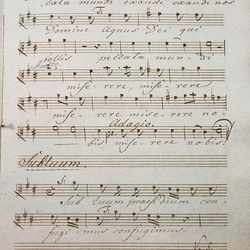 cata mundi exaudi exaudi nos
Domine Agnus Dei qui
tollis peccata mundi
miserere miserere
miserere miserere no-
Adagio.
bis miserere nobis.
Sub tuum.
Sub tuum praesidium con-
fugimus confugimus